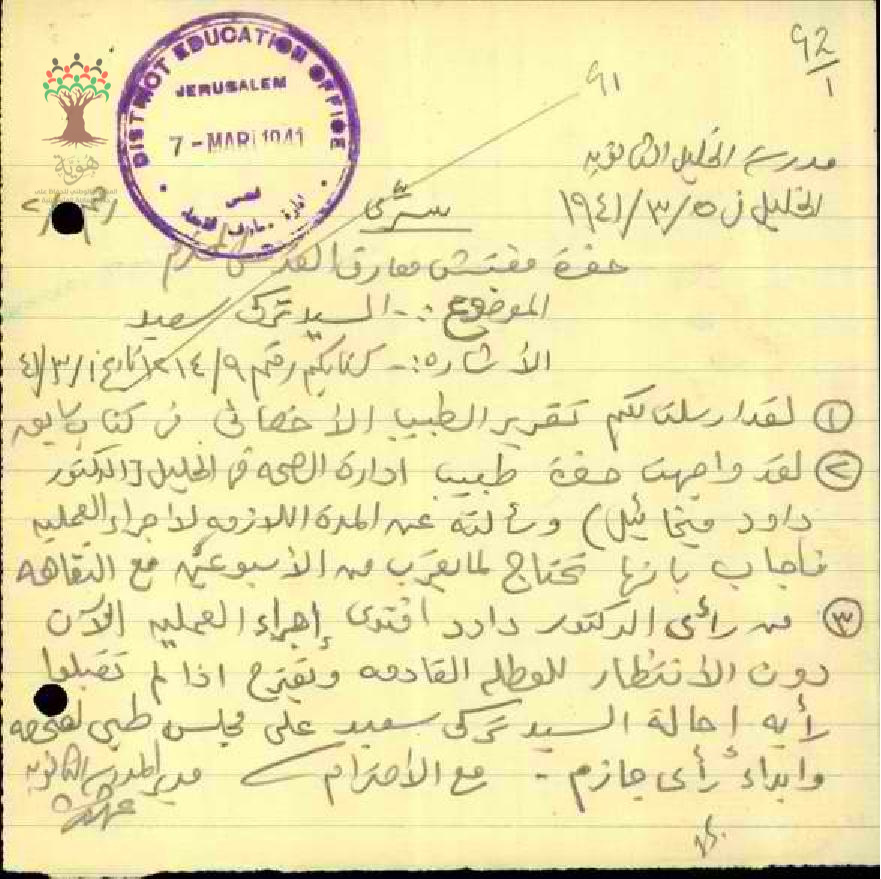 ٩٢
١
٩١
DISTRICT EDUCATION OFFICE
JERUSALEM
7 - MAR 1941
هوية
مدرسة الخليل الثانويه
الخليل في ٥/٣/١٩٤١
سرّي
حضرة مفتش معارف القدس المحترم
الموضوع :- السيد تركي سعيد
الأشاره :- كتابكم رقم
١) لقد ارسلنا لكم تقرير الطبيب الأخصائي في كتاب سابق
٢) لقد واجهت حضرة طبيب ادارة الصحه في الخليل (الدكتور
داود ميخائيل) وسألته عن المدة اللازمه لاجراء العمليه
فأجاب بانها تحتاج لما يقرب من الأسبوعين مع النقاهه
٣) من رأي الدكتور داود افندي إجراء العمليه الآن
دون الأنتظار للعطله القادمه ويقترح اذا لم تقبلوا
رأيه احالة السيد تركي سعيد على مجلس طبي لفحصه
وابداء رأي جازم - مع الأحترام
مدير المدرسه الثانويه